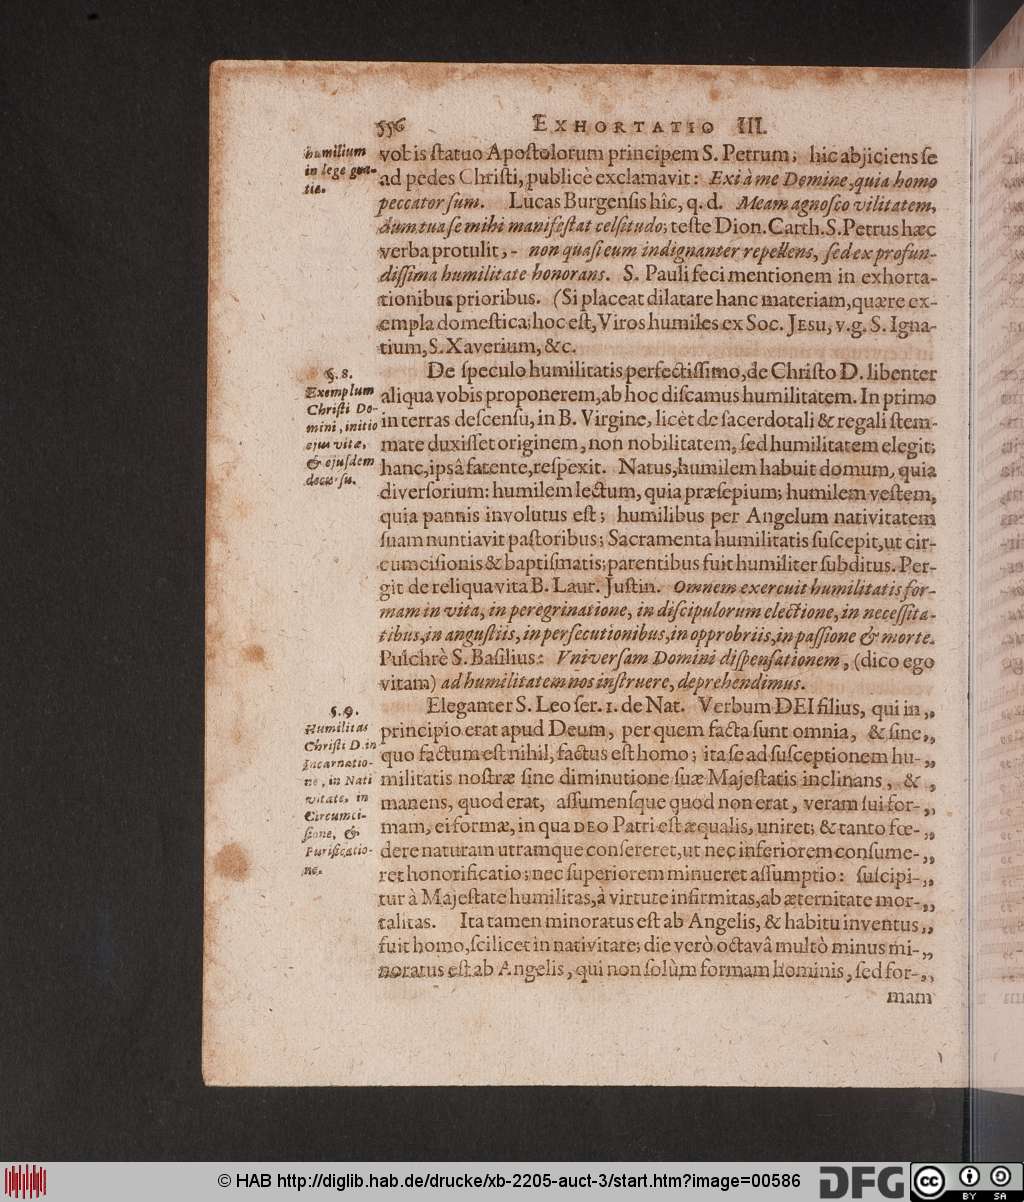 556 EXHORTATIO III.
humilium
in lege gra-
tiæ.
vobis statuo Apostolorum principem S. Petrum; hic abjiciens se
ad pedes Christi, publicè exclamavit: Exi à me Domine, quia homo
peccator sum. Lucas Burgensis hic, q. d. Meam agnosco vilitatem,
dum tua se mihi manifestat celsitudo; teste Dion. Carth. S. Petrus hæc
verba protulit, - non quasi eum indignanter repellens, sed ex profun-
dissima humilitate honorans. S. Pauli feci mentionem in exhorta-
tionibus prioribus. (Si placeat dilatare hanc materiam, quære ex-
empla domestica; hoc est, Viros humiles ex Soc. JESU, v.g. S. Igna-
tium, S. Xaverium, &c.
§. 8.
Exemplum
Christi Do-
mini, initio
ejus vitæ,
& ejusdem
decursu.
De speculo humilitatis perfectissimo, de Christo D. libenter
aliqua vobis proponerem, ab hoc discamus humilitatem. In primo
in terras descensu, in B. Virgine, licèt de sacerdotali & regali stem-
mate duxisset originem, non nobilitatem, sed humilitatem elegit;
hanc, ipsâ fatente, respexit. Natus, humilem habuit domum, quia
diversorium: humilem lectum, quia præsepium; humilem vestem,
quia pannis involutus est; humilibus per Angelum nativitatem
suam nuntiavit pastoribus; Sacramenta humilitatis suscepit, ut cir-
cumcisionis & baptismatis; parentibus fuit humiliter subditus. Per-
git de reliqua vita B. Laur. Justin. Omnem exercuit humilitatis for-
mam in vita, in peregrinatione, in discipulorum electione, in necessita-
tibus, in angustiis, in persecutionibus, in opprobriis, in passione & morte.
Pulchrè S. Basilius: Universam Domini dispensationem, (dico ego
vitam) ad humilitatem nos instruere, deprehendimus.
§. 9.
Humilitas
Christi D. in
Incarnatio-
ne, in Nati
vitate, in
Circumci-
sione, &
Purificatio-
ne.
Eleganter S. Leo ser. 1. de Nat. Verbum DEI filius, qui in „
principio erat apud Deum, per quem facta sunt omnia, & sine „
quo factum est nihil, factus est homo; ita se ad susceptionem hu- „
militatis nostræ sine diminutione suæ Majestatis inclinans, & „
manens, quod erat, assumensque quod non erat, veram sui for- „
mam, ei formæ, in qua DEO Patri est æqualis, uniret; & tanto fœ- „
dere naturam utramque consereret, ut nec inferiorem consume- „
ret honorificatio; nec superiorem minueret assumptio: suscipi- „
tur à Majestate humilitas, à virtute infirmitas, ab æternitate mor- „
talitas. Ita tamen minoratus est ab Angelis, & habitu inventus „
fuit homo, scilicet in nativitate; die verò octavâ multò minus mi- „
noratus est ab Angelis, qui non solùm formam hominis, sed for- „
mam
© HAB http://diglib.hab.de/drucke/xb-2205-auct-3/start.htm?image=00586
DFG
cc BY SA